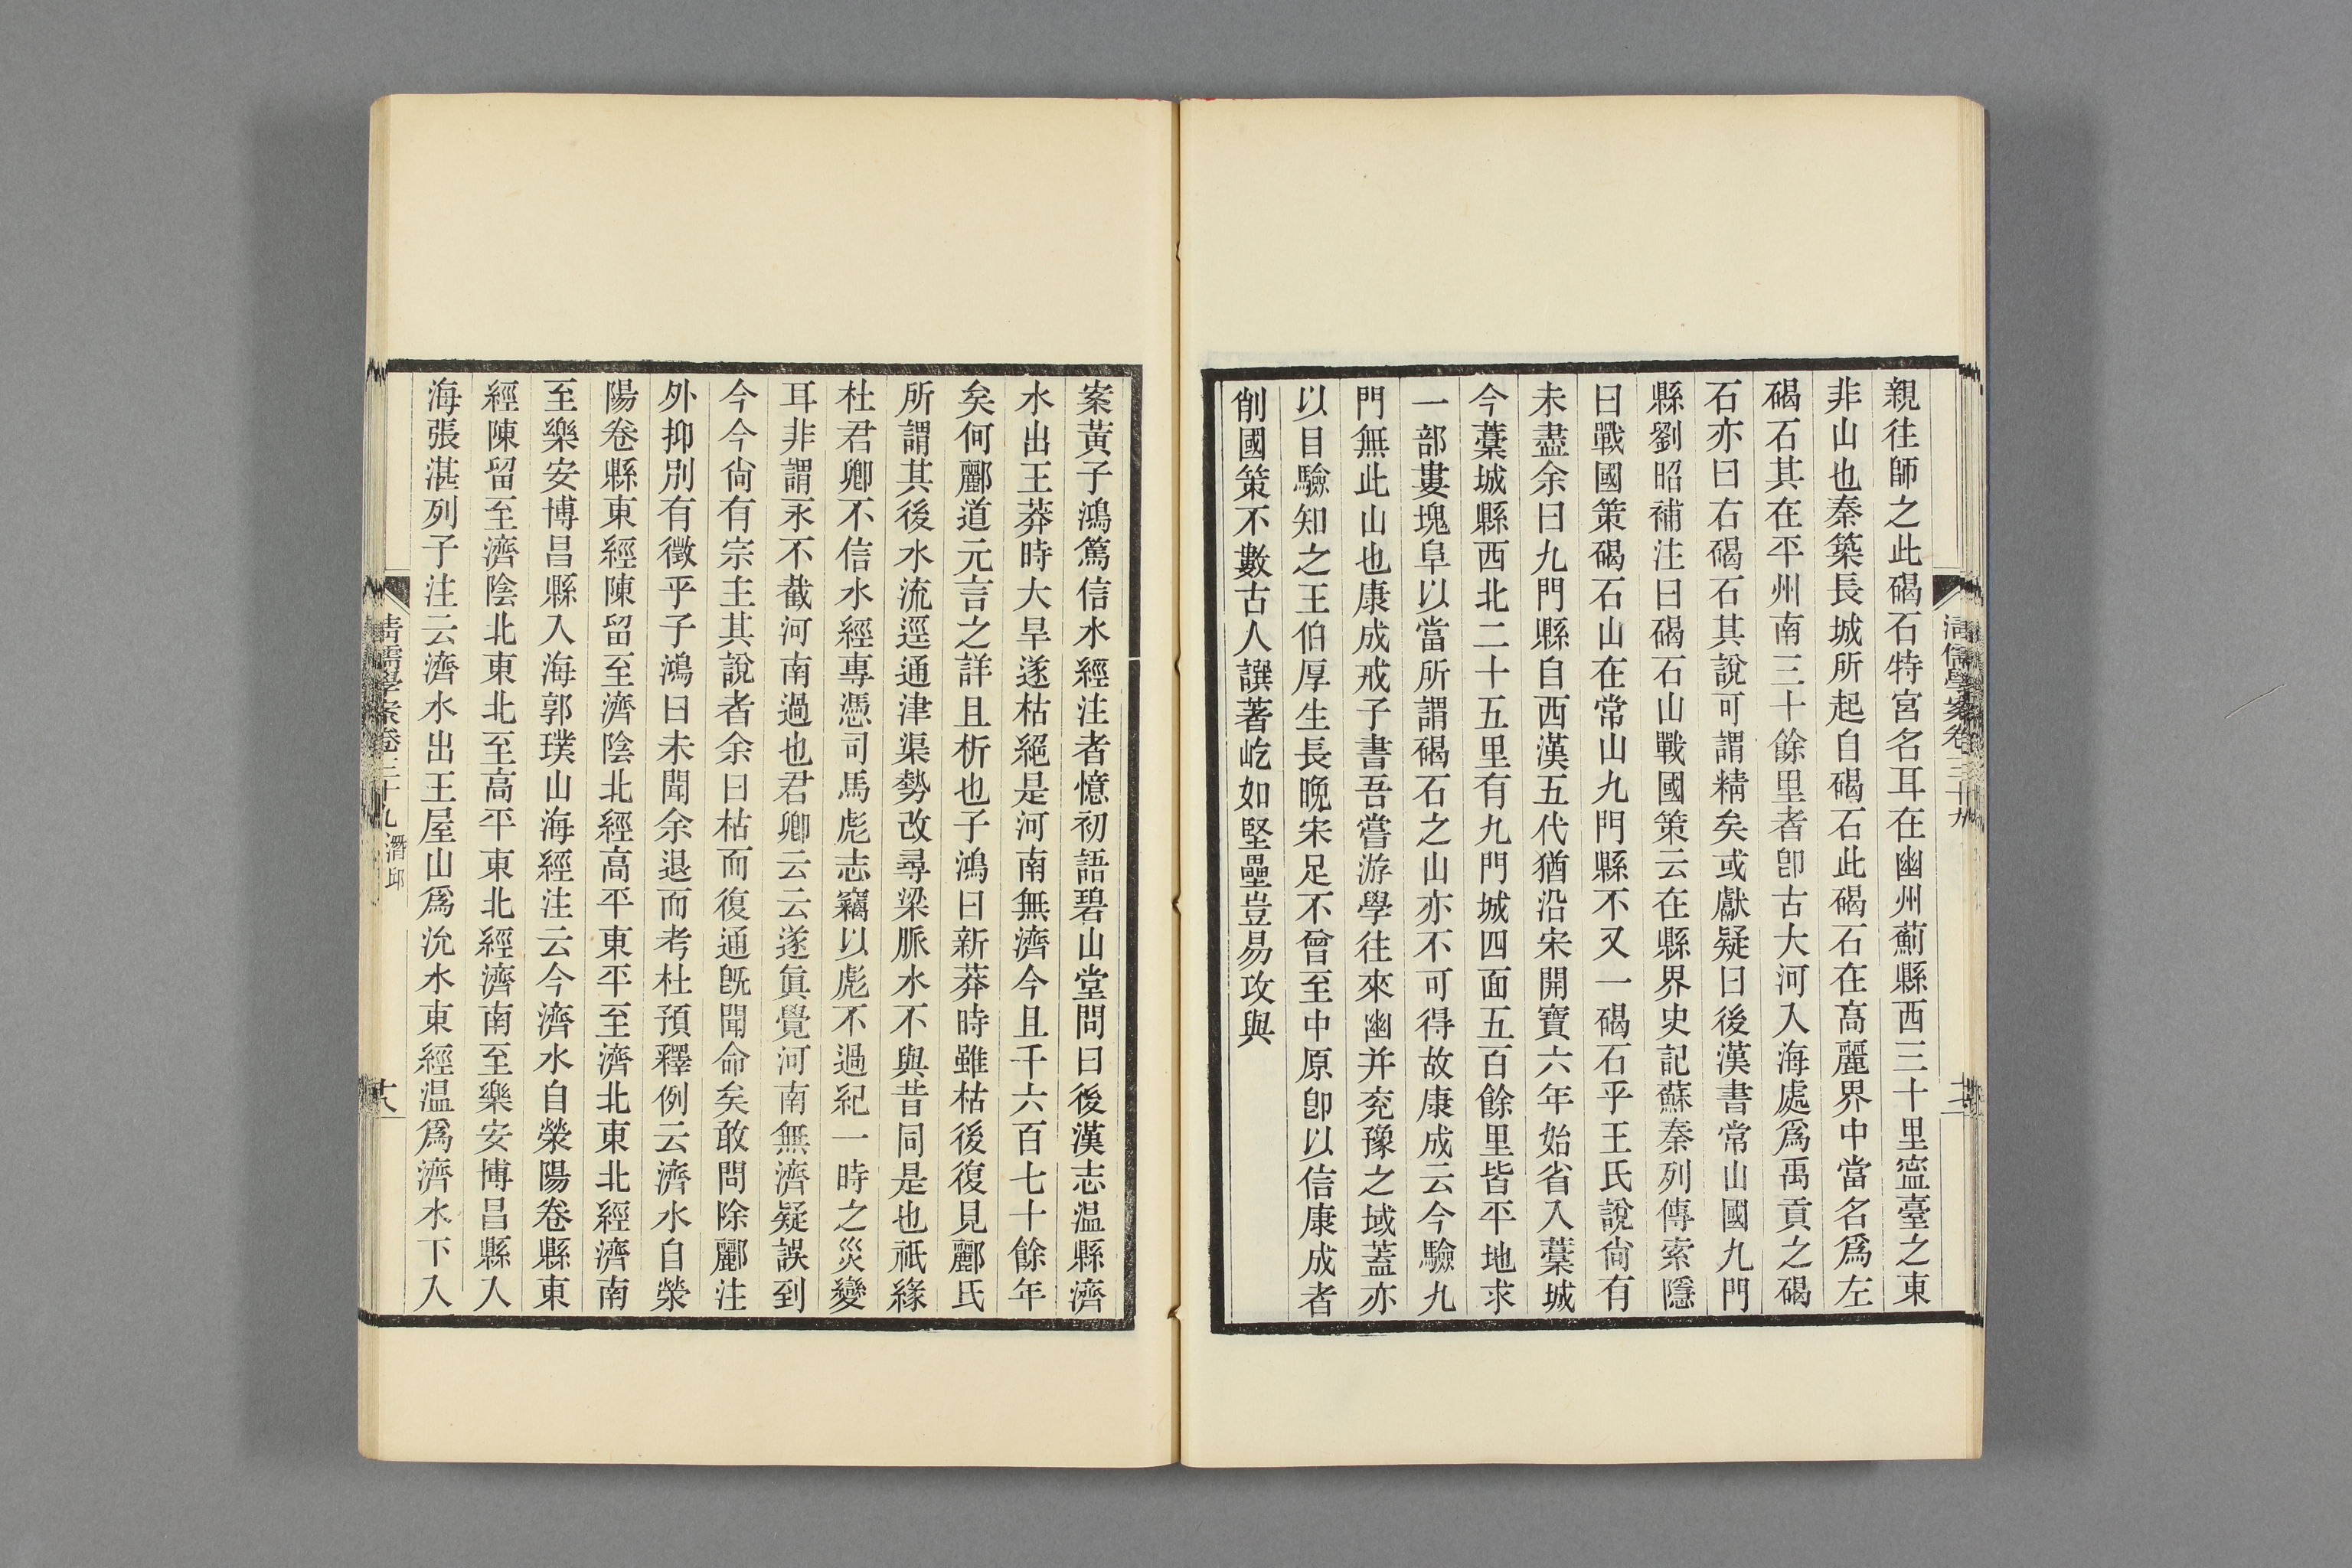 親往師之此碣石特宮名耳在幽州薊縣西三十里寍臺之東
非山也秦築長城所起自碣石此碣石在高麗界中當名爲左
碣石其在平州南三十餘里者卽古大河入海處爲禹貢之碣
石亦曰右碣石其說可謂精矣或獻疑曰後漢書常山國九門
縣劉昭補注曰碣石山戰國策云在縣界史記蘇秦列傳索隱
曰戰國策碣石山在常山九門縣不又一碣石乎王氏說尙有
未盡余曰九門縣自西漢五代猶沿宋開寶六年始省入藁城
今藁城縣西北二十五里有九門城四面五百餘里皆平地求
一部婁塊阜以當所謂碣石之山亦不可得故康成云今驗九
門無此山也康成戒子書吾嘗游學往來幽并兖豫之域蓋亦
以目驗知之王伯厚生長晚宋足不曾至中原卽以信康成者
削國策不數古人譔著屹如堅壘豈易攻與
清儒學案卷三十九
案黃子鴻篤信水經注者憶初語碧山堂問曰後漢志温縣濟
水出王莽時大旱遂枯絕是河南無濟今且千六百七十餘年
矣何酈道元言之詳且析也子鴻曰新莽時雖枯後復見酈氏
所謂其後水流逕通津渠勢改尋梁脈水不與昔同是也祇緣
杜君卿不信水經專憑司馬彪志竊以彪不過紀一時之災變
耳非謂永不截河南過也君卿云云遂眞覺河南無濟疑誤到
今今尙有宗主其說者余曰枯而復通旣聞命矣敢問除酈注
外抑別有徵乎子鴻曰未聞余退而考杜預釋例云濟水自滎
陽卷縣東經陳留至濟陰北經高平東平至濟北東北經濟南
至樂安博昌縣入海郭璞山海經注云今濟水自滎陽卷縣東
經陳留至濟陰北東北至高平東北經濟南至樂安博昌縣入
海張湛列子注云濟水出王屋山爲沇水東經温爲濟水下入
清儒學案卷三十九 潛邱